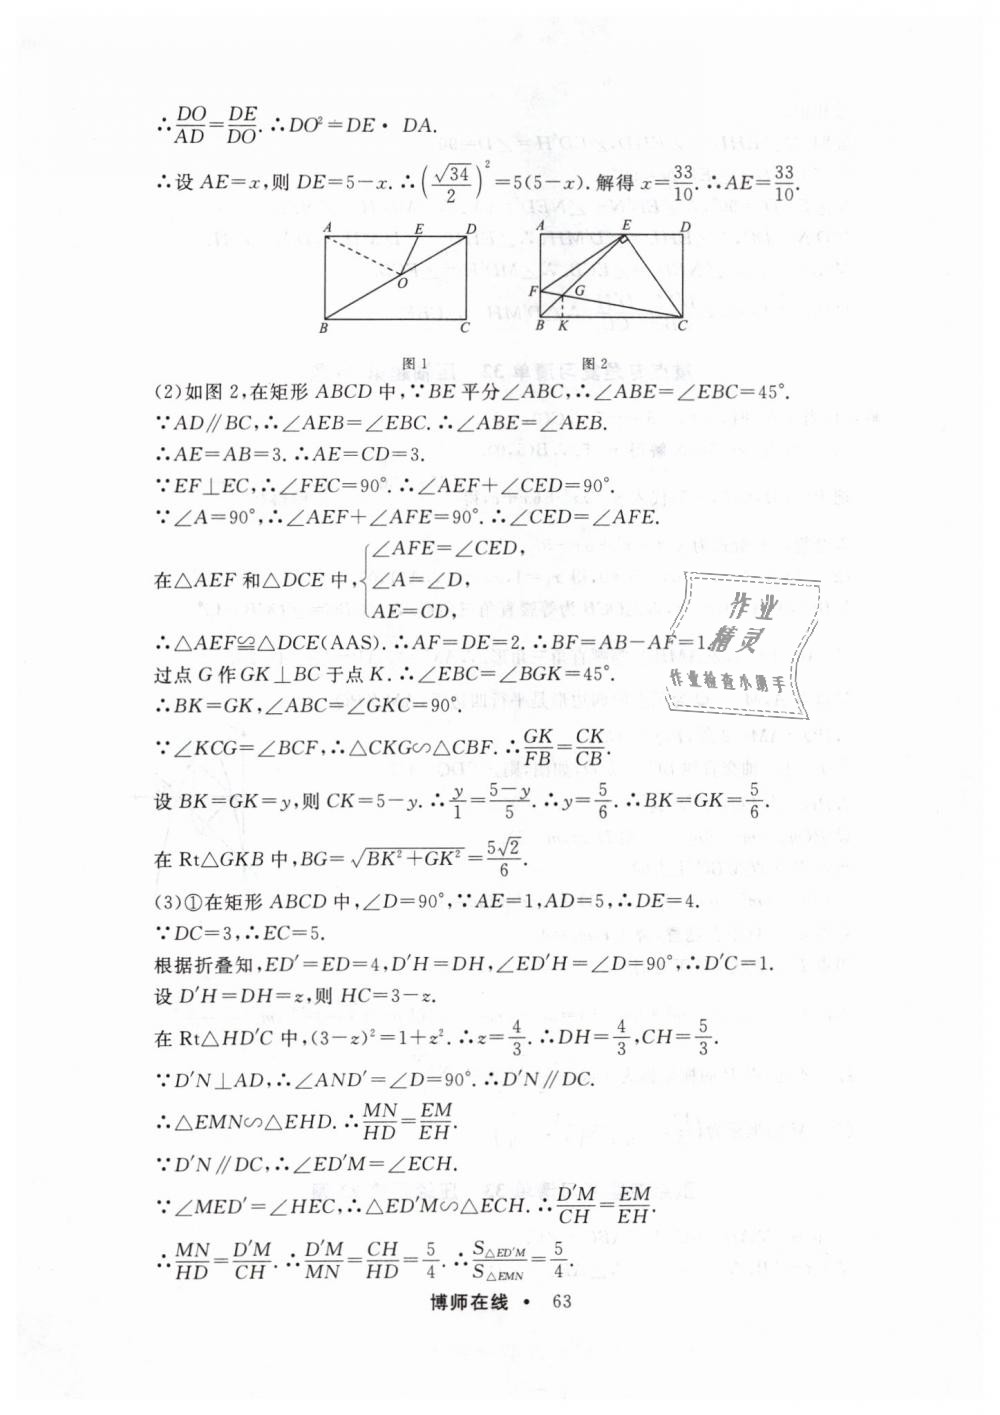 ∴DO/AD=DE/DO.∴DO²=DE·DA.
∴设 AE=x,则 DE=5-x.∴(√34/2)²=5(5-x).解得 x=33/10.∴AE=33/10.
A E D A E D
O F G
B C B K C
图 1 图 2
(2)如图 2,在矩形 ABCD 中,∵BE 平分∠ABC,∴∠ABE=∠EBC=45°.
∵AD∥BC,∴∠AEB=∠EBC.∴∠ABE=∠AEB.
∴AE=AB=3.∴AE=CD=3.
∵EF⊥EC,∴∠FEC=90°.∴∠AEF+∠CED=90°.
∵∠A=90°,∴∠AEF+∠AFE=90°.∴∠CED=∠AFE.
∠AFE=∠CED,
在△AEF 和△DCE 中,{∠A=∠D,
AE=CD,
∴△AEF≌△DCE(AAS).∴AF=DE=2.∴BF=AB-AF=1
过点 G 作 GK⊥BC 于点 K.∴∠EBC=∠BGK=45°.
∴BK=GK,∠ABC=∠GKC=90°.
∵∠KCG=∠BCF,∴△CKG∽△CBF.∴GK/FB=CK/CB.
设 BK=GK=y,则 CK=5-y.∴y/1=5-y/5.∴y=5/6.∴BK=GK=5/6.
在 Rt△GKB 中,BG=√BK²+GK²=5√2/6.
(3)①在矩形 ABCD 中,∠D=90°,∵AE=1,AD=5,∴DE=4.
∵DC=3,∴EC=5.
根据折叠知,ED′=ED=4,D′H=DH,∠ED′H=∠D=90°,∴D′C=1.
设 D′H=DH=z,则 HC=3-z.
在 Rt△HD′C 中,(3-z)²=1+z².∴z=4/3.∴DH=4/3,CH=5/3.
∵D′N⊥AD,∴∠AND′=∠D=90°.∴D′N∥DC.
∴△EMN∽△EHD.∴MN/HD=EM/EH.
∵D′N∥DC,∴∠ED′M=∠ECH.
∵∠MED′=∠HEC,∴△ED′M∽△ECH.∴D′M/CH=EM/EH.
∴MN/HD=D′M/CH.∴D′M/MN=CH/HD=5/4.∴S△ED′M/S△EMN=5/4.
博师在线 · 63
作业
精灵
作业检查小助手